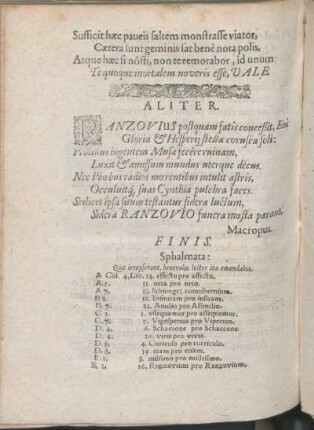 Sufficit hæc paucis saltem monstrasse viator,
Cætera sunt geminis sat benè nota polis,
Atque hæc si nôsti, non te remorabor, id unum
Te quoque mortalem noveris esse, VALE.
ALITER.
RANZOVIUS postquam fatis concessit, Eoi
Gloria & Hesperij stella corusca soli:
Protinus ingentem Musæ fecêre ruinam,
Luxit & amissum mundus uterque decus.
Nec Phœbus radios mœrentibus intulit astris,
Occuluitq; suas Cynthia pulchra faces.
Scilicet ipsa suum testantur sidera luctum,
Sidera RANZOVIO funera mœsta parant.
Macropus.
FINIS.
Sphalmata:
Quæ irrepserunt, benevolus lector ita emendabis.
A Col. 4. Lin. 14. effecto pro affecta.
A. 5. 11. orta pro ortæ.
A. 7. 11. connubernium.
B. 5. 12. limitem pro
B. 7. 22. Amulio pro
C. 1. 1. assequemur pro assequemur.
C. 7. 7. Vigesperous pro Vesperous.
D. 4. 6. Schaccone pro Schaccone.
D. 4. 20. viris pro vivis.
D. 8. 4. Curiculo pro curriculo.
D. 8. 19. etam pro etiam.
E. 1. 9. milismo pro millesimo.
E. 2. 16. Ragnovium pro Ranzovium.